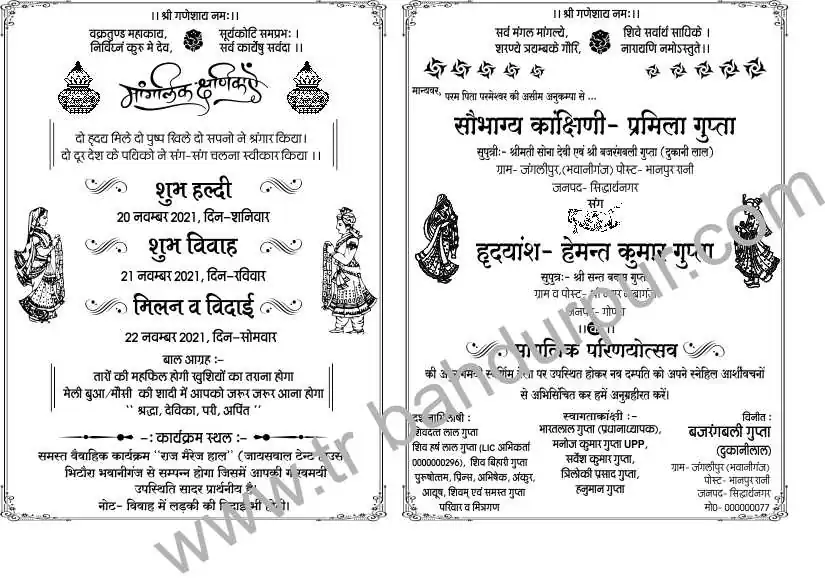 ।। श्री गणेशाय नमः।।
वक्रतुण्ड महाकाय, सूर्यकोटि समप्रभः।
निर्विघ्नं कुरू मे देव, सर्व कार्येषु सर्वदा ।।
मांगलिक क्षणिकाएँ
दो हृदय मिले दो पुष्प खिले दो सपनो ने श्रंगार किया।
दो दूर देश के पथिको ने संग-संग चलना स्वीकार किया ।।
शुभ हल्दी
20 नवम्बर 2021, दिन–शनिवार
शुभ विवाह
21 नवम्बर 2021, दिन–रविवार
मिलन व विदाई
22 नवम्बर 2021, दिन–सोमवार
बाल आग्रह :-
तारों की महफिल होगी खुशियों का तराना होगा
मेली बुआ/मौसी की शादी में आपको जरूर जरूर आना होगा
" श्रद्धा, देविका, परी, अर्पित "
-: कार्यक्रम स्थल :-
समस्त वैवाहिक कार्यक्रम "राज मैरेज हाल" (जायसवाल टेन्ट हाउस
भिटौरा भवानीगंज से सम्पन्न होगा जिसमें आपकी गौरवमयी
उपस्थिति सादर प्रार्थनीय है।
नोट- विवाह में लड़की की विदाई भी होगी।
।। श्री गणेशाय नमः।।
सर्व मंगल मांगल्ये, शिवे सर्वार्थ साधिके ।
शरण्ये त्रयम्बके गौरि, नारायणि नमोऽस्तुते।।
मान्यवर, परम पिता परमेश्वर की असीम अनुकम्पा से ...
सौभाग्य कांक्षिणी- प्रमिला गुप्ता
सुपुत्रीः- श्रीमती सोना देवी एवं श्री बजरंगबली गुप्ता (दुकानी लाल)
ग्राम- जंगलीपुर,(भवानीगंज) पोस्ट- भानपुर रानी
जनपद- सिद्धार्थनगर
संग
हृदयांश- हेमन्त कुमार गुप्ता
सुपुत्रः- श्री सन्त बक्स गुप्ता
ग्राम व पोस्ट-
जनपद- गोण्डा
।। के ।।
मांगलिक परिणयोत्सव
की स्वर्णिम बेला पर उपस्थित होकर नव दम्पति को अपने स्नेहिल आर्शीवचनों
से अभिसिंचित कर हमें अनुग्रहीरत करें।
दर्शनाभिलाषी :
शिवदत्त लाल गुप्ता
शिव हर्ष लाल गुप्ता (LIC अभिकर्ता
0000000296), शिव बिहारी गुप्ता
पुरूषोत्तम, प्रिन्स, अभिषेक, अंकुर,
आयूष, शिवम् एवं समस्त गुप्ता
परिवार व मित्रगण
स्वागताकांक्षी :-
भारतलाल गुप्ता (प्रधानाध्यापक),
मनोज कुमार गुप्ता UPP,
सर्वेश कुमार गुप्ता,
त्रिलोकी प्रसाद गुप्ता,
हनुमान गुप्ता
विनीत :
बजरंगबली गुप्ता
(दुकानीलाल)
ग्राम- जंगलीपुर (भवानीगंज)
पोस्ट- भानपुर रानी
जनपद- सिद्धार्थनगर
मो0- 000000077
www.tr bahdurpur.com